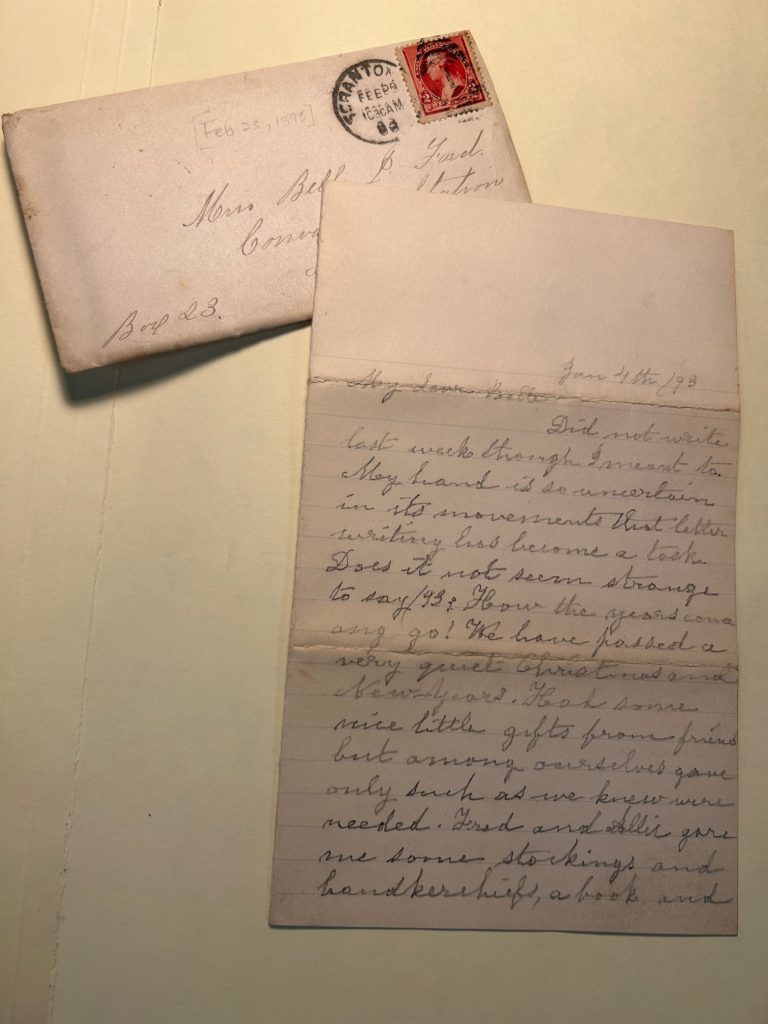 SCRANTON
FEB 24
1030AM
2 2
[Feb 23, 1893]
Miss Bell B. Ford.
Station
Box 23.
Jan 4th /93
My dear Belle
Did not write
last week though I meant to.
My hand is so uncertain
in its movements that letter
writing has become a task.
Does it not seem strange
to say /93? How the years come
ang go! We have passed a
very quiet Christmas and
New Years. Had some
nice little gifts from friend
but among ourselves gave
only such as we knew were
needed. Fred and Allie gave
me some stockings and
handkerchiefs, a book and